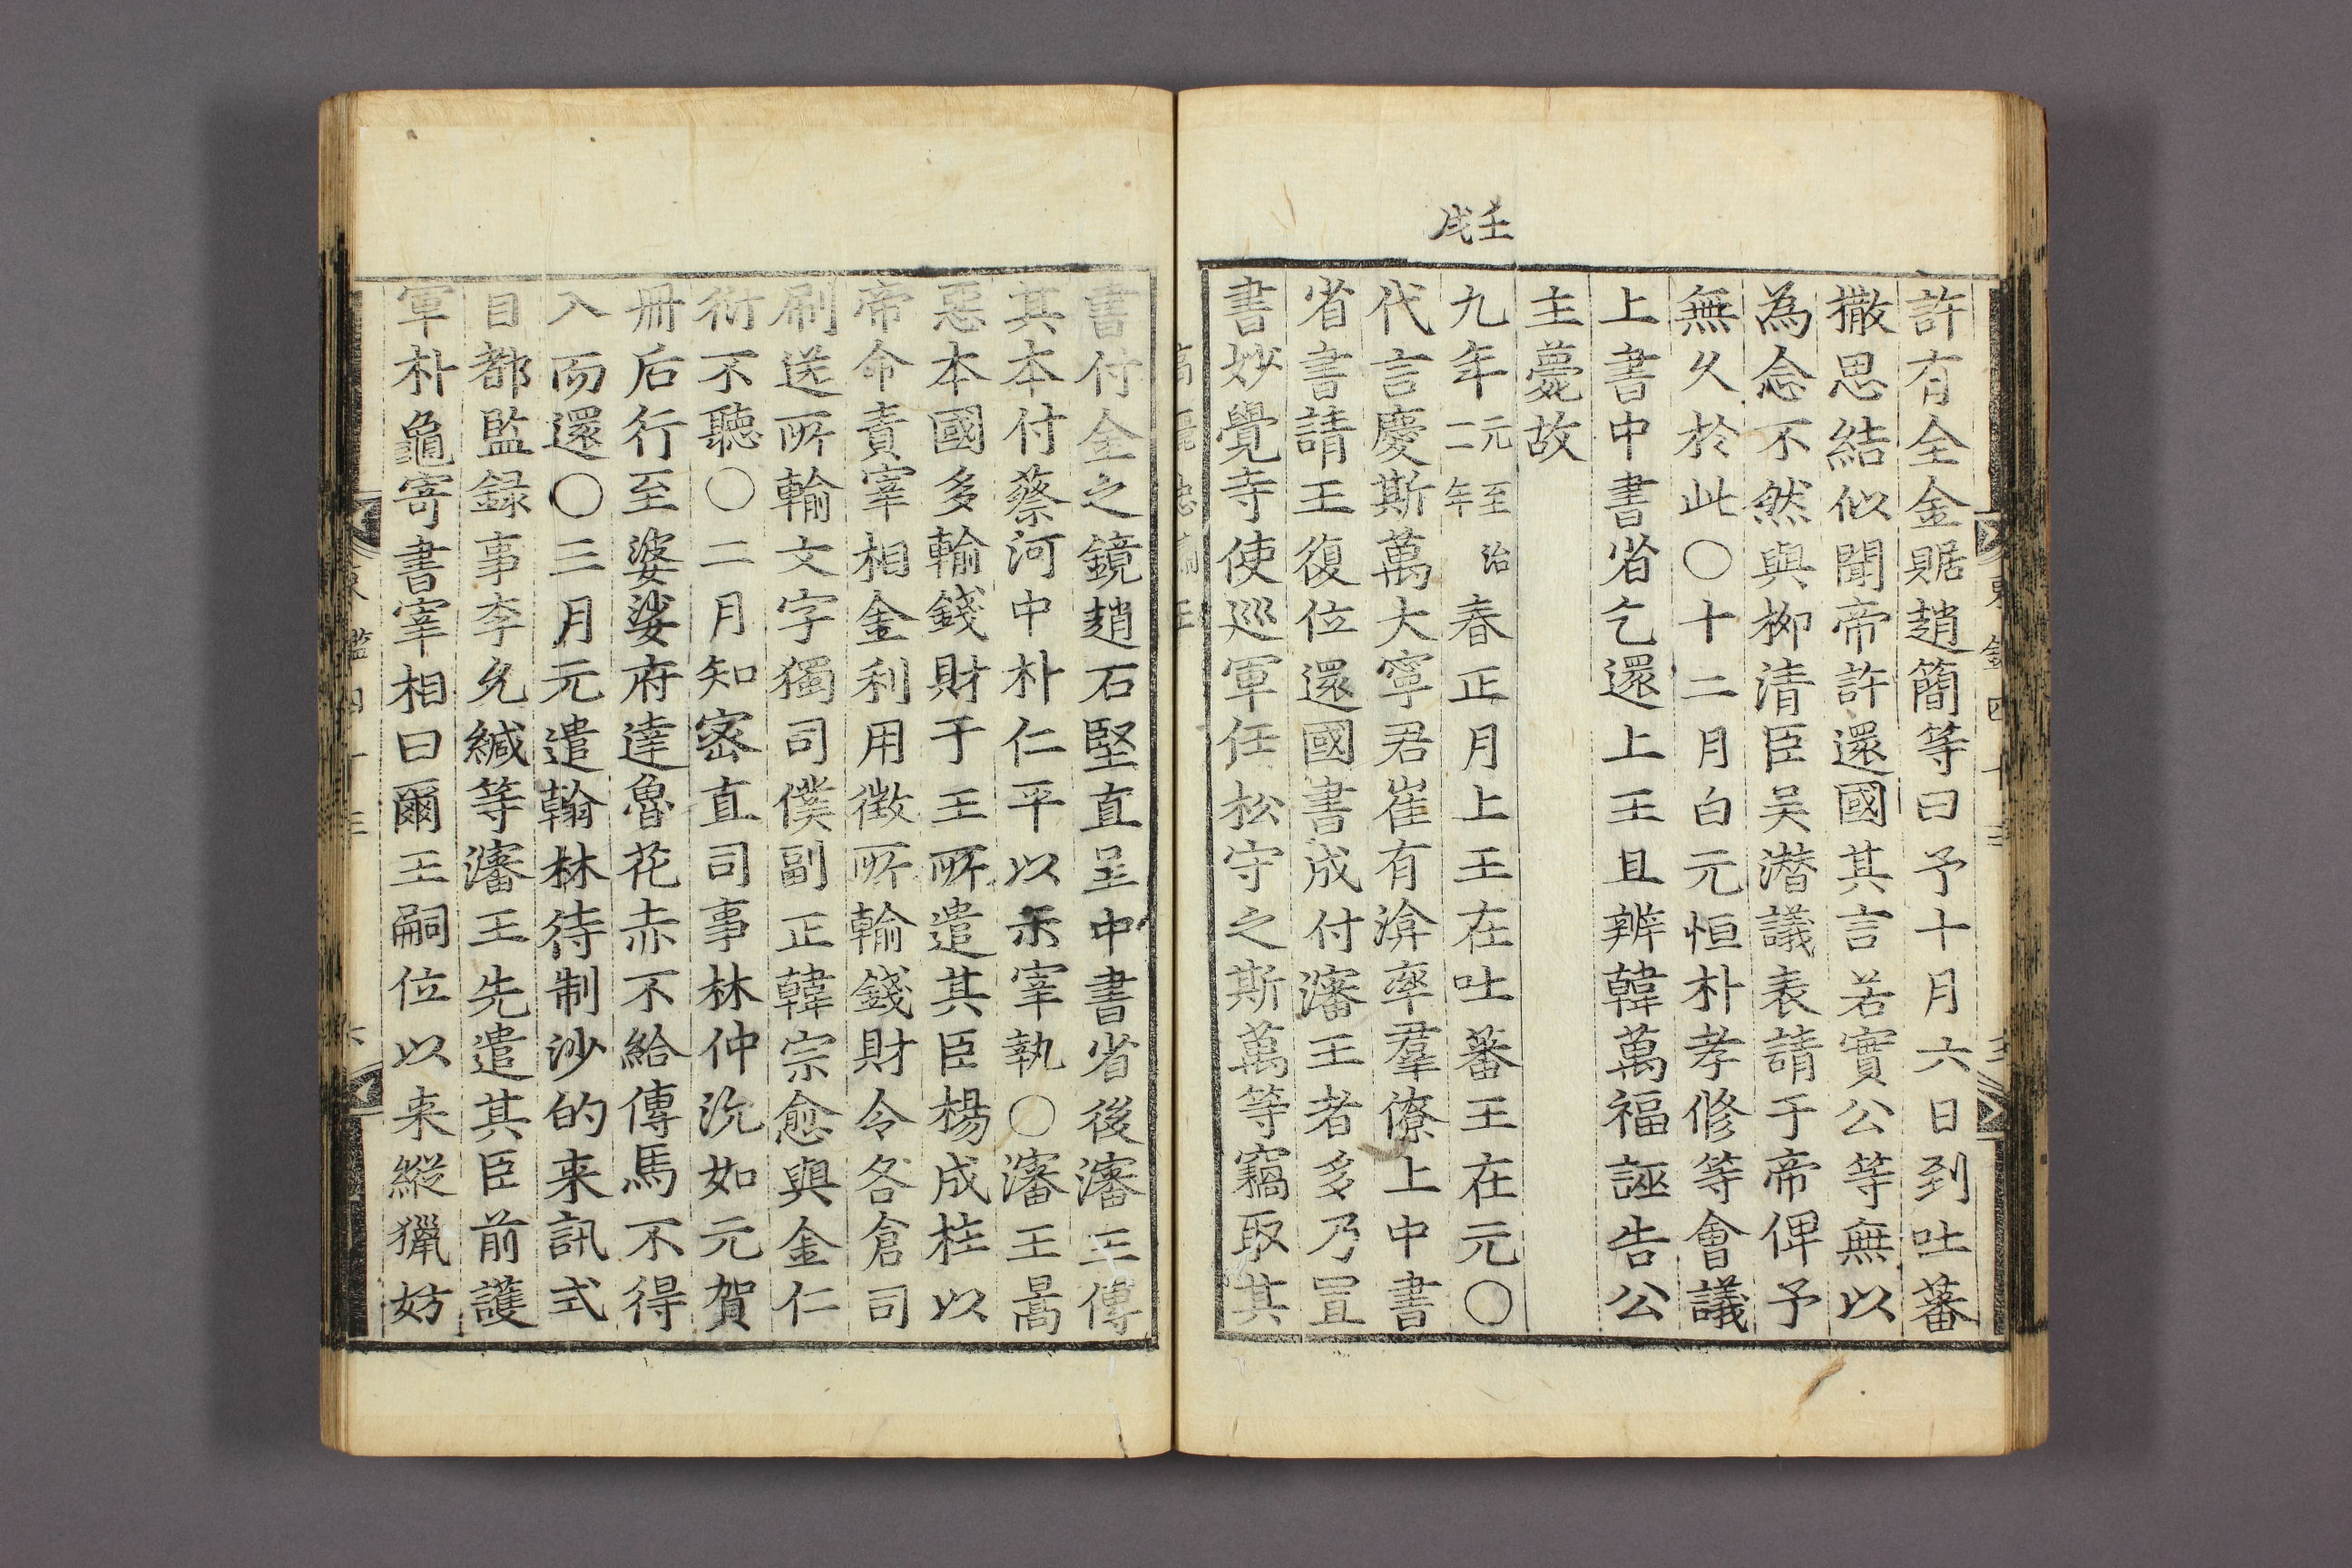 許有全金賆趙簡等曰予十月六日到吐蕃
撒思結似聞帝許還國其言若實公等無以
為念不然與柳清臣吴潜議表請于帝俾予
無久於此〇十二月白元恒朴孝修等會議
上書中書省乞還上王且辨韓萬福誣告公
主薨故
壬戌
九年元至治二年春正月上王在吐蕃王在元〇
代言慶斯萬大寧君崔有渰率羣僚上中書
省書請王復位還國書成付瀋王者多乃置
書妙覺寺使巡軍任松守之斯萬等竊取其
書付全之鏡趙石堅直呈中書省後瀋王傳
其本付蔡河中朴仁平以示宰執〇瀋王暠
惡本國多輸錢財于王所遣其臣楊成柱以
帝命責宰相金利用徵所輸錢財令各倉司
刷送所輸文字獨司僕副正韓宗愈與金仁
衍不聽〇二月知密直司事林仲沇如元賀
冊后行至婆娑府達魯花赤不給傳馬不得
入而還〇三月元遣翰林待制沙的来訊式
目都監録事李允緘等瀋王先遣其臣前護
軍朴龜寄書宰相曰爾王嗣位以来縱獵妨